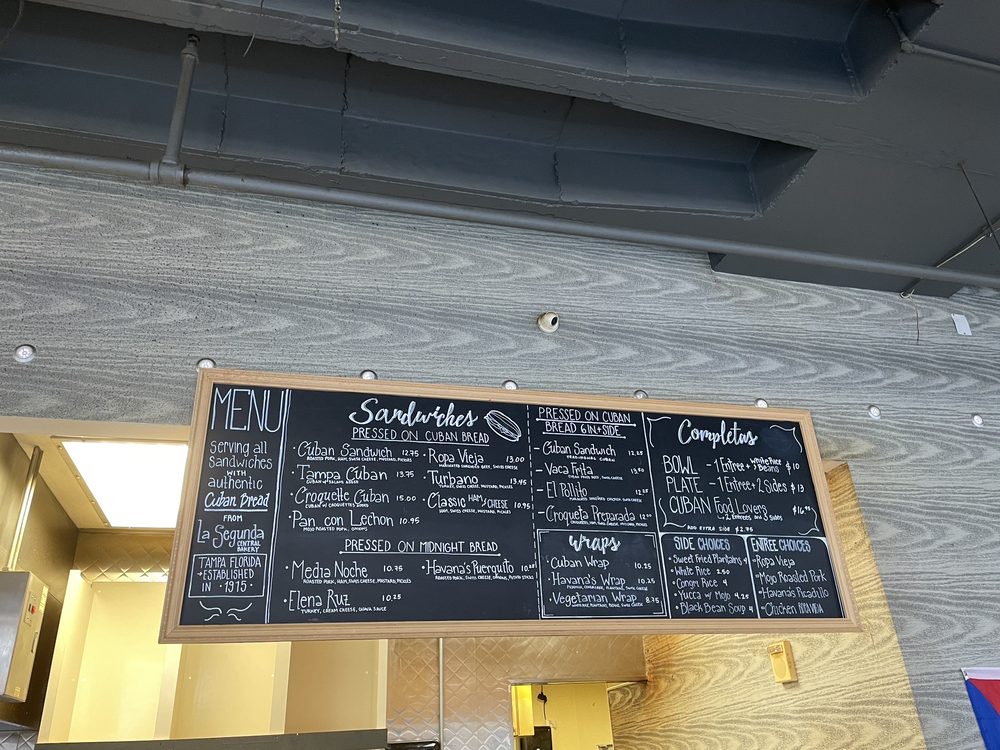 MENU
Serving all
Sandwiches
WITH
authentic
Cuban Bread
FROM
La Segunda
CENTRAL
BAKERY
TAMPA FLORIDA
ESTABLISHED
IN 1915
Sandwiches
PRESSED ON CUBAN BREAD
Cuban Sandwich 12.75
ROASTED PORK, HAM, SWISS CHEESE, MUSTARD, PICKLES
Tampa Cuban 13.75
CUBAN W/ SALAMI
Croquette Cuban 15.00
CUBAN W/ CROQUETTES
Pan con Lechon 10.95
MOJO ROAST PORK, ONIONS
Ropa Vieja 13.00
MARINATED SHREDDED BEEF, SWISS CHEESE
Turbano 13.45
TURKEY, SWISS CHEESE, MUSTARD, PICKLES
Classic HAM & CHEESE 10.95
HAM, SWISS CHEESE, MUSTARD, PICKLES
PRESSED ON MIDNIGHT BREAD
Media Noche 10.75
ROASTED PORK, HAM, SWISS CHEESE, MUSTARD, PICKLES
Elena Ruz 10.25
TURKEY, CREAM CHEESE, GUAVA SAUCE
Havana's Puerquito
ROASTED PORK, SWISS CHEESE, POTATO STICKS
PRESSED ON CUBAN
BREAD 6 IN + SIDE
Cuban Sandwich 12.25
TRADITIONAL CUBAN
Vaca Frita
El Pollito
Croqueta Preparada
Wraps
Cuban Wrap 10.25
Havana's Wrap 10.25
Vegetarian Wrap 8.75
Completas
BOWL - 1 Entree + White Rice & Beans $10
PLATE - 1 Entree + 2 Sides $13
CUBAN Food Lovers
2 Entrees and 3 Sides
ADD EXTRA SIDE $2.75
SIDE CHOICES
Sweet Fried Plantains 4
White Rice 2.50
Congri Rice 4
Yucca w/ Mojo 4.25
Black Bean Soup 4
ENTREE CHOICES
Ropa Vieja
Mojo Roasted Pork
Havana's Picadillo
Chicken ROPA VIEJA